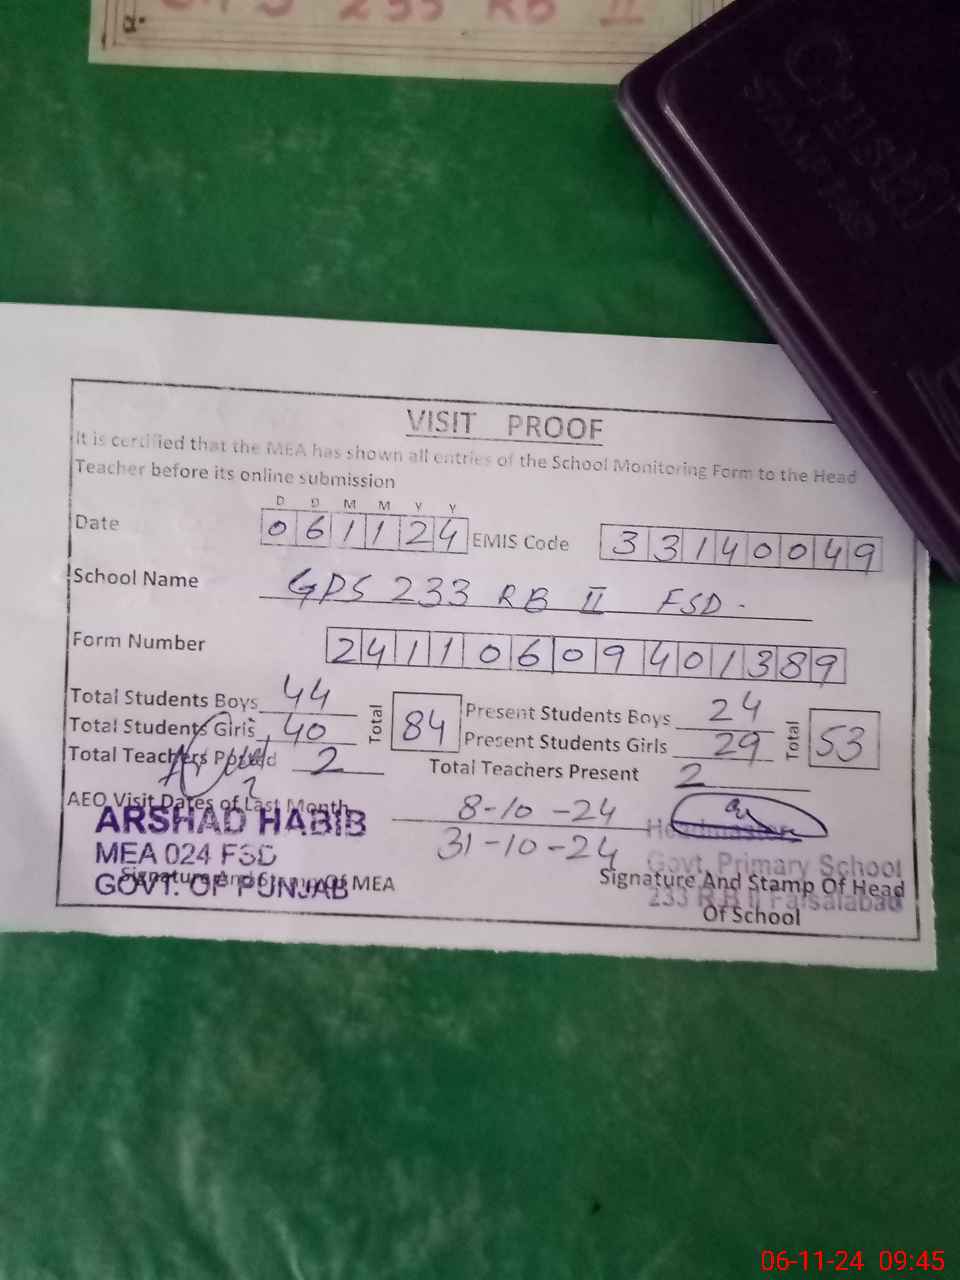 233 RB II
Crystal
STAMP PAD
VISIT PROOF
It is certified that the MEA has shown all entries of the School Monitoring Form to the Head
Teacher before its online submission
D D M M Y Y
Date 061124 EMIS Code 33140049
School Name GPS 233 RB II FSD.
Form Number 24110609401389
Total Students Boys 44 Total 84 Present Students Boys 24 Total 53
Total Students Girls 40 Present Students Girls 29
Total Teachers Posted 2 Total Teachers Present 2
AEO Visit Dates of Last Month 8-10-24
31-10-24
ARSHAD HABIB
MEA 024 FSD
GOVT. OF PUNJAB
Signature And Stamp Of MEA
Headmaster
Govt. Primary School
233 R.B II Faisalabad
Signature And Stamp Of Head
Of School
06-11-24 09:45